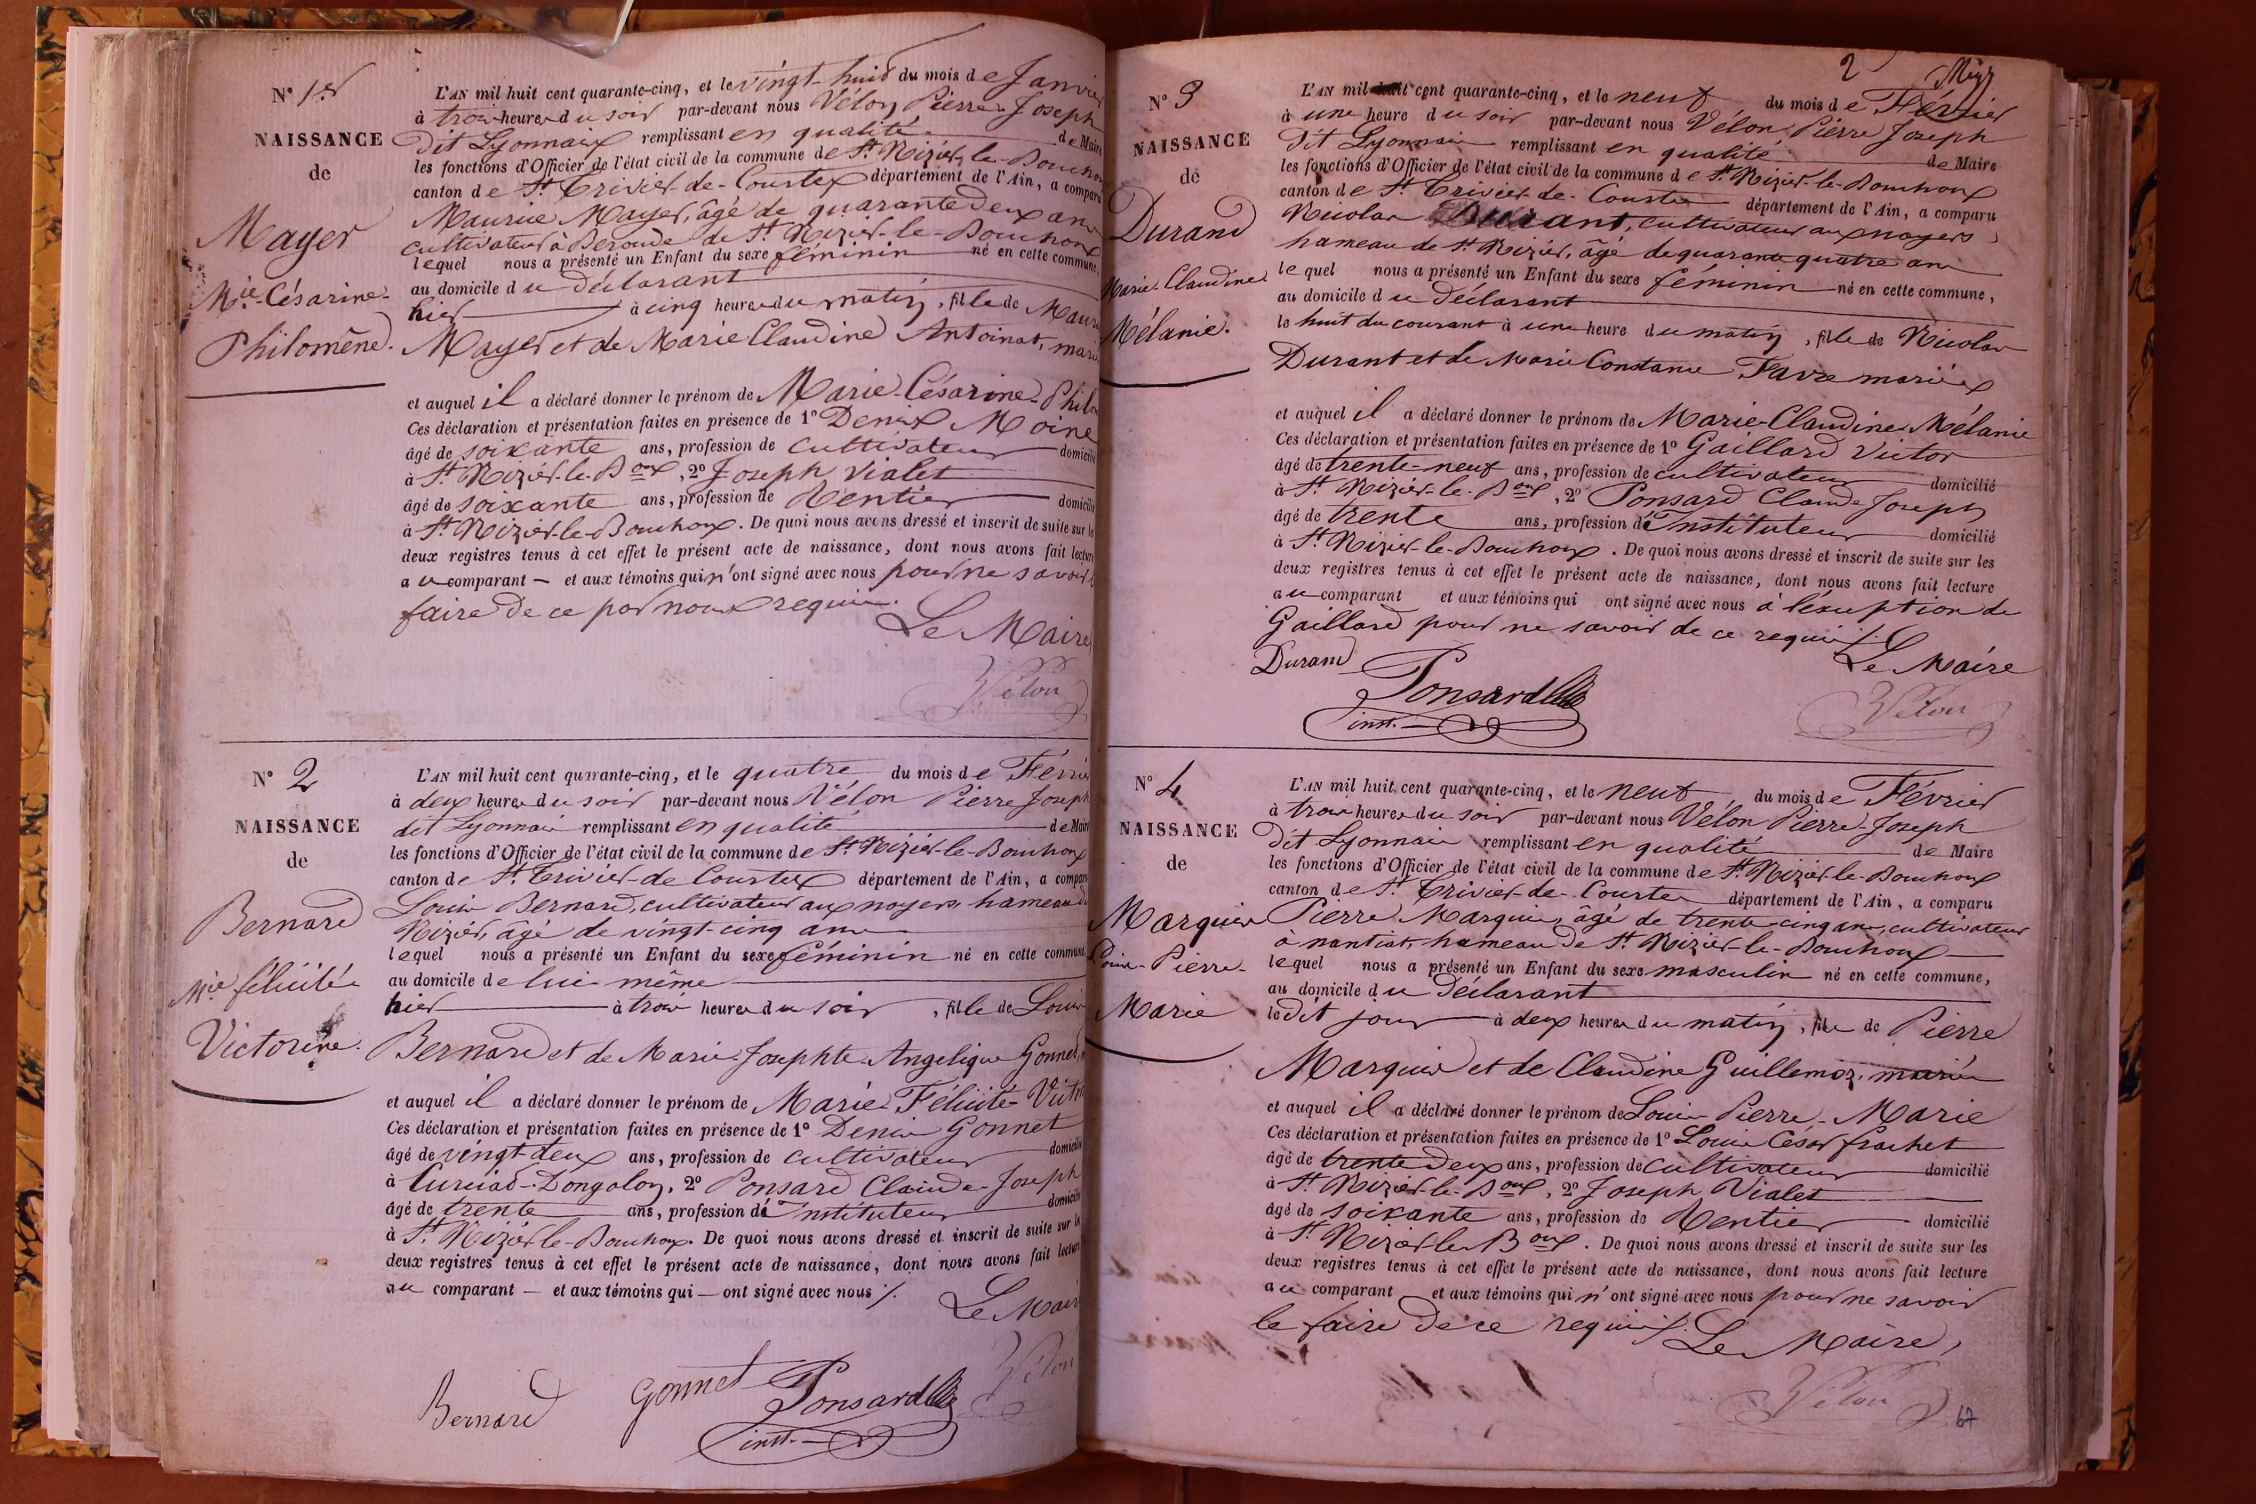 N° 1er
NAISSANCE
de
Mayer
Mie Césarine-
Philomène.
L'AN mil huit cent quarante-cinq, et le vingt-huit du mois de Janvier
à trois heures du soir par-devant nous Vélon Pierre Joseph
dit Lyonnais remplissant en qualité de Maire
les fonctions d'Officier de l'état civil de la commune de St Nizier-le-Bouchoux
canton de St Trivier-de-Courtes département de l'Ain, a comparu
Maurice Mayer, âgé de quarante deux ans
cultivateur à Beroude de St Nizier-le-Bouchoux
lequel nous a présenté un Enfant du sexe féminin né en cette commune,
au domicile du déclarant
hier à cinq heures du matin, fille de Mauri
Mayer et de Marie Claudine Antoinat, mari
et auquel il a déclaré donner le prénom de Marie-Césarine-Philo
Ces déclaration et présentation faites en présence de 1° Denis Moine
âgé de soixante ans, profession de cultivateur domicilié
à St Nizier-le-Boux, 2° Joseph Vialet
âgé de soixante ans, profession de Rentier domicilié
à St Nizier-le-Bouchoux. De quoi nous avons dressé et inscrit de suite sur les
deux registres tenus à cet effet le présent acte de naissance, dont nous avons fait lecture
au comparant — et aux témoins qui n'ont signé avec nous pour ne savoir le
faire de ce par nous requis.
Le Maire
Vélon
N° 2
NAISSANCE
de
Bernard
Mie félicité
Victorine.
L'AN mil huit cent quarante-cinq, et le quatre du mois de Février
à deux heures du soir par-devant nous Vélon Pierre Joseph
dit Lyonnais remplissant en qualité de Maire
les fonctions d'Officier de l'état civil de la commune de St Nizier-le-Bouchoux
canton de St Trivier-de Courtes département de l'Ain, a comparu
Louis Bernard, cultivateur aux noyers hameau de
Nizier, âgé de vingt-cinq ans
lequel nous a présenté un Enfant du sexe féminin né en cette commune
au domicile de lui même
hier à trois heures du soir, fille de Louis
Bernard et de Marie Josephte Angelique Gonnet,
et auquel il a déclaré donner le prénom de Marie Félicité-Victo
Ces déclaration et présentation faites en présence de 1° Denis Gonnet
âgé de vingt deux ans, profession de cultivateur domicilié
à Curciat-Dongalon, 2° Ponsard Claude Joseph
âgé de trente ans, profession d'Instituteur domicilié
à St Nizier le-Bouchoux. De quoi nous avons dressé et inscrit de suite sur les
deux registres tenus à cet effet le présent acte de naissance, dont nous avons fait lecture
au comparant — et aux témoins qui — ont signé avec nous ./.
Le Maire
Bernard Gonnet Ponsard Vélon
inst.
2
N° 3
NAISSANCE
de
Durand
Marie-Claudine
Mélanie.
L'AN mil huit cent quarante-cinq, et le neuf du mois de Février
à une heure du soir par-devant nous Vélon Pierre Joseph
dit Lyonnais remplissant en qualité de Maire
les fonctions d'Officier de l'état civil de la commune de St Nizier-le-Bouchoux
canton de St Trivier-de-Courtes département de l'Ain, a comparu
Nicolas Durant, cultivateur aux noyers
hameau de St Nizier, âgé de quarante quatre ans
lequel nous a présenté un Enfant du sexe féminin né en cette commune,
au domicile du déclarant
le huit du courant à une heure du matin, fille de Nicolas
Durant et de Marie Constance Favre mariés
et auquel il a déclaré donner le prénom de Marie-Claudine Mélanie
Ces déclaration et présentation faites en présence de 1° Gaillard Victor
âgé de trente-neuf ans, profession de cultivateur domicilié
à St Nizier-le-Boux, 2° Ponsard Claude Joseph
âgé de trente ans, profession d'Instituteur domicilié
à St Nizier-le-Bouchoux. De quoi nous avons dressé et inscrit de suite sur les
deux registres tenus à cet effet le présent acte de naissance, dont nous avons fait lecture
au comparant et aux témoins qui ont signé avec nous à l'exception de
Gaillard pour ne savoir de ce requis ./.
Durand Le Maire
Ponsard Vélon
inst.
N° 4
NAISSANCE
de
Marquis
Louis-Pierre-
Marie
L'AN mil huit cent quarante-cinq, et le neuf du mois de Février
à trois heures du soir par-devant nous Vélon Pierre-Joseph
dit Lyonnais remplissant en qualité de Maire
les fonctions d'Officier de l'état civil de la commune de St Nizier-le-Bouchoux
canton de St Trivier-de-Courtes département de l'Ain, a comparu
Pierre Marquis, âgé de trente-cinq ans, cultivateur
à nantiat, hameau de St Nizier-le-Bouchoux
lequel nous a présenté un Enfant du sexe masculin né en cette commune,
au domicile du déclarant
ledit jour à deux heures du matin, fils de Pierre
Marquis et de Claudine Guillemoz, mariés
et auquel il a déclaré donner le prénom de Louis Pierre-Marie
Ces déclaration et présentation faites en présence de 1° Louis César frachet
âgé de trente deux ans, profession de cultivateur domicilié
à St Nizier-le-Boux, 2° Joseph Vialet
âgé de soixante ans, profession de Rentier domicilié
à St Nizier le Boux. De quoi nous avons dressé et inscrit de suite sur les
deux registres tenus à cet effet le présent acte de naissance, dont nous avons fait lecture
au comparant et aux témoins qui n'ont signé avec nous pour ne savoir
le faire de ce requis ./.
Le Maire,
Vélon
67